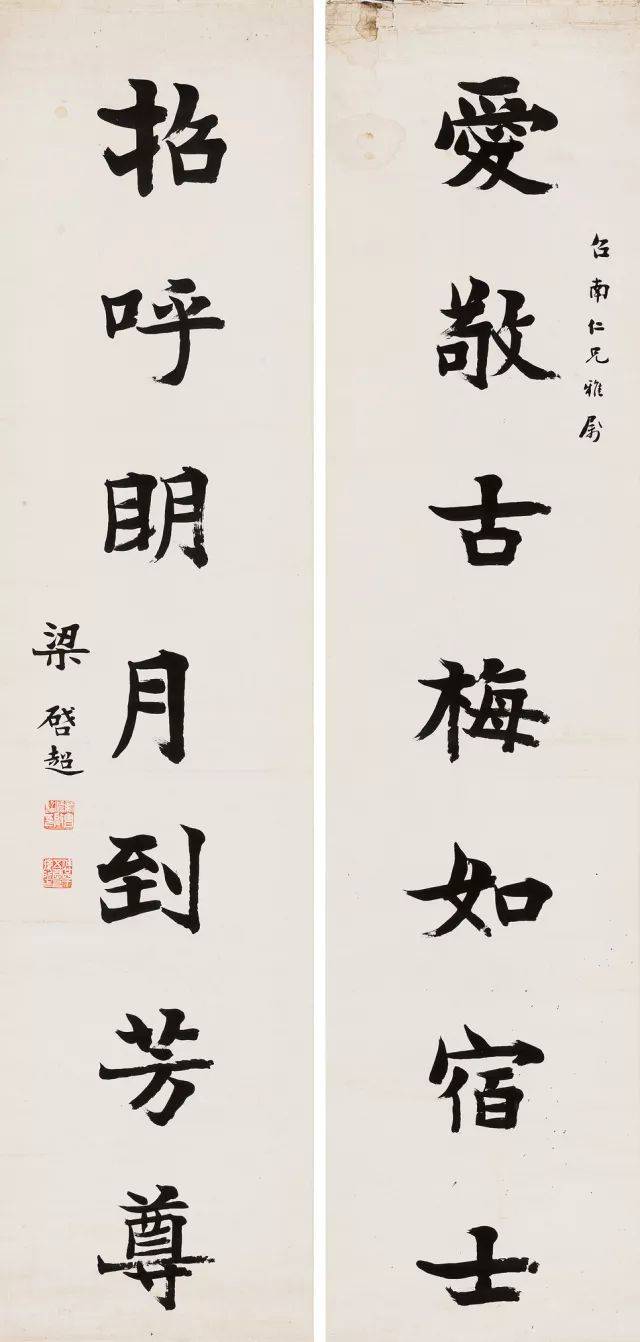 召南仁兄雅属
愛敬古梅如宿士
招呼眀月到芳尊
梁啓超